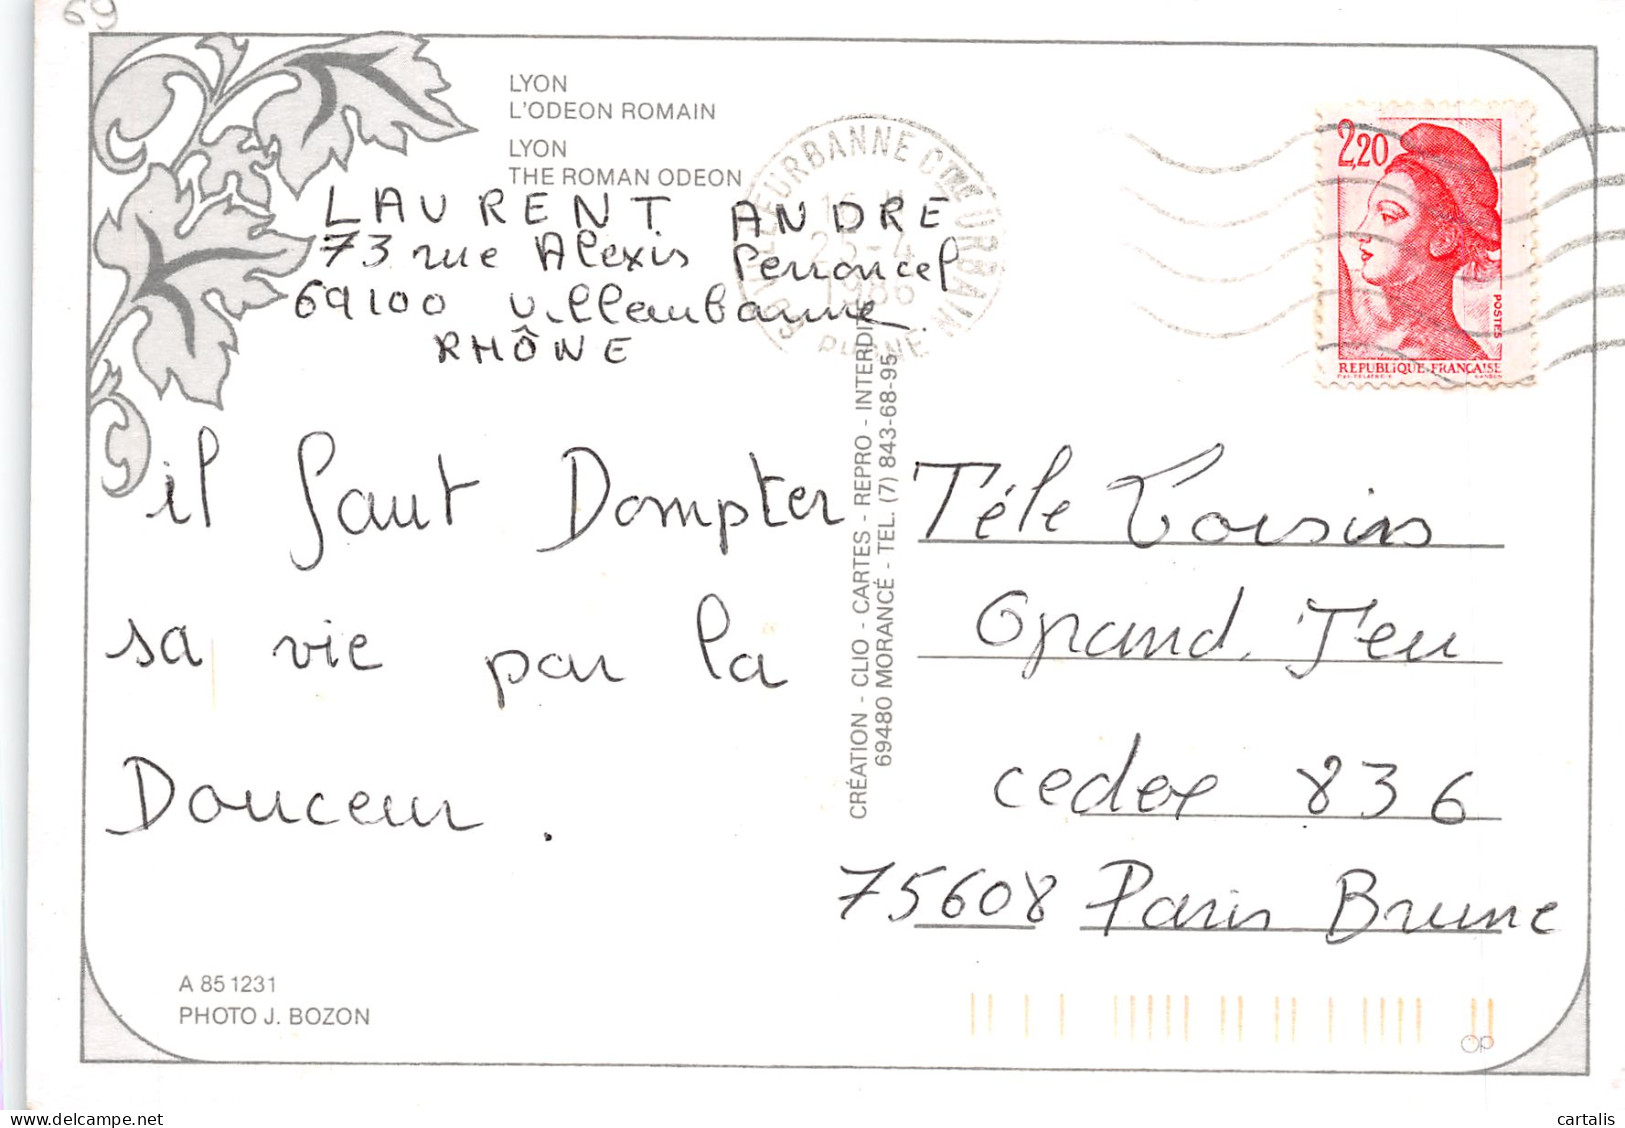 69
LYON
L'ODEON ROMAIN
LYON
THE ROMAN ODEON
LAURENT ANDRE
73 rue Alexis Perroncel
69100 Villeurbanne
RHÔNE
VILLEURBANNE Cme URBAIN
16 H
25-4
1986
RHONE
2,20
POSTES
REPUBLIQUE-FRANÇAISE
il faut Dompter
sa vie par la
Douceur.
CRÉATION - CLIO - CARTES - REPRO - INTERDITE
69480 MORANCÉ - TEL. (7) 843-68-95
Téle Loisirs
Grand Jeu
cedex 836
75608 Paris Brune
A 85 1231
PHOTO J. BOZON
cartalis